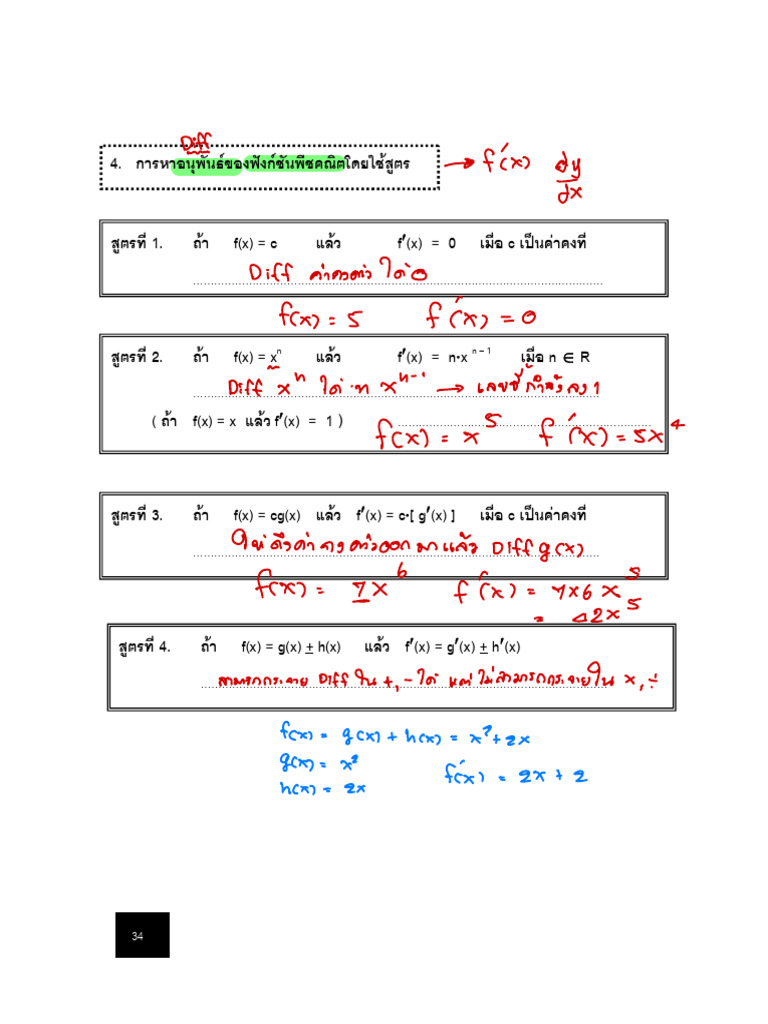 Diff
4. การหาอนุพันธ์ของฟังก์ชันพีชคณิตโดยใช้สูตร → f′(x) dy/dx
สูตรที่ 1. ถ้า f(x) = c แล้ว f′(x) = 0 เมื่อ c เป็นค่าคงที่
Diff ค่าคงตัว ได้ 0
f(x) = 5 f′(x) = 0
สูตรที่ 2. ถ้า f(x) = xⁿ แล้ว f′(x) = n•x ⁿ⁻¹ เมื่อ n ∈ R
Diff xⁿ ได้ n xⁿ⁻¹ → เลขชี้กำลังลง 1
( ถ้า f(x) = x แล้ว f′(x) = 1 )
f(x) = x⁵ f′(x) = 5x⁴
สูตรที่ 3. ถ้า f(x) = cg(x) แล้ว f′(x) = c•[ g′(x) ] เมื่อ c เป็นค่าคงที่
ให้ดึงค่าคงตัวออกมาแล้ว Diff g(x)
f(x) = 7x⁶ f′(x) = 7x6 x⁵
= 42x⁵
สูตรที่ 4. ถ้า f(x) = g(x) ± h(x) แล้ว f′(x) = g′(x) ± h′(x)
สามารถกระจาย Diff ใน +, - ได้ แต่ไม่สามารถกระจายใน x, ÷
f(x) = g(x) + h(x) = x² + 2x
g(x) = x²
f′(x) = 2x + 2
h(x) = 2x
34